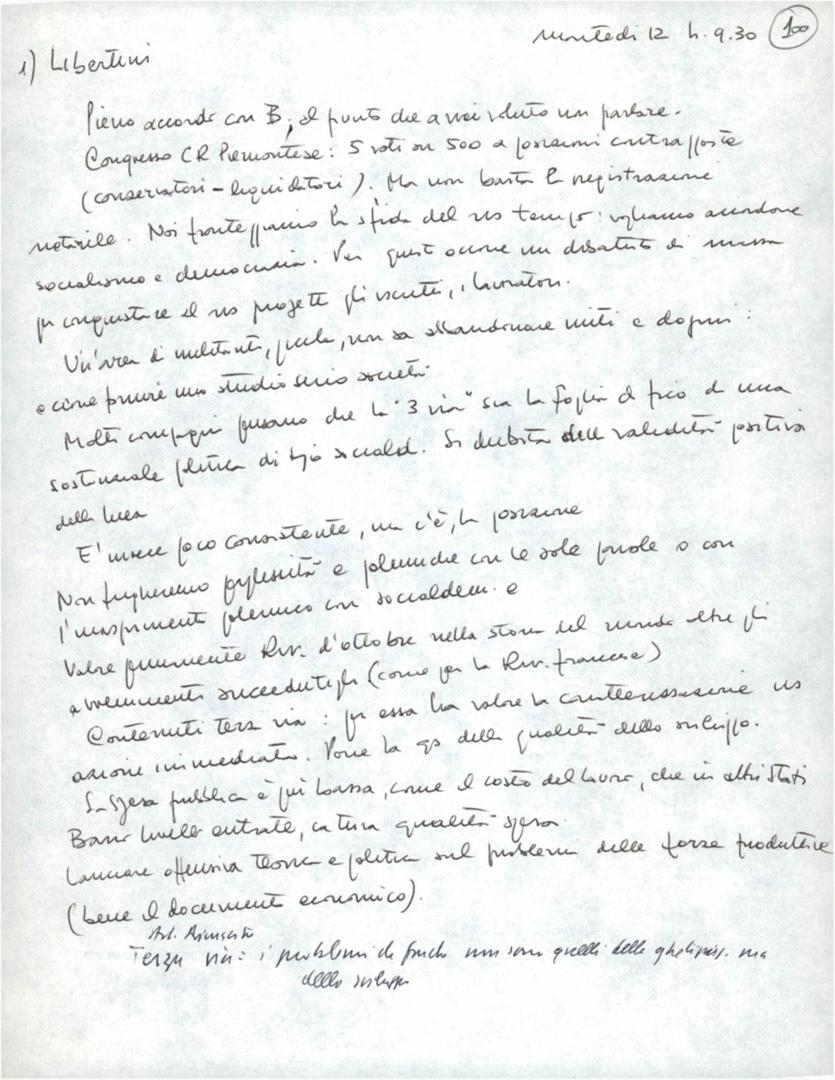 martedì 12 h. 9.30 100
1) Libertini
Pieno accordo con B; il punto che a noi
Congresso CR Piemontese: 5 voti su 500 a posizioni contrapposte
(conservatori – liquidatori). Ma non basta la registrazione
notarile. Noi fronteggiamo la sfida del ns tempo: vogliamo
socialismo e democrazia. Per questo occorre un dibattito di massa
per conquistare al ns progetto gli iscritti, i lavoratori.
Un'area di militanti, piccola, non sa abbandonare miti e dogmi:
occorre uno studio serio società
Molti compagni pensano che la "3 via" sia la foglia di fico di una
sostanziale politica di tipo sociald. Si dubita della validità positiva
della linea
E' invece poco consistente, ma c'è, la posizione
Non fugheremo perplessità e polemiche con le sole parole o con
l'inasprimento polemico con socialdem. e
Valore permanente Riv. d'ottobre nella storia del mondo oltre gli
avvenimenti succedutigli (come per la Riv. francese)
Contenuti terza via: per essa ha valore la connessione ns
azione immediata. Pone la qs della qualità dello sviluppo.
La spesa pubblica è più bassa, come il costo del lavoro, che in altri stati
Basso livello entrate, cattiva qualità spesa.
Lanciare offensiva teorica e politica sul problema delle forze produttive
(bene il documento economico).
Terza via: i problemi di fondo non sono quelli della ma
dello sviluppo